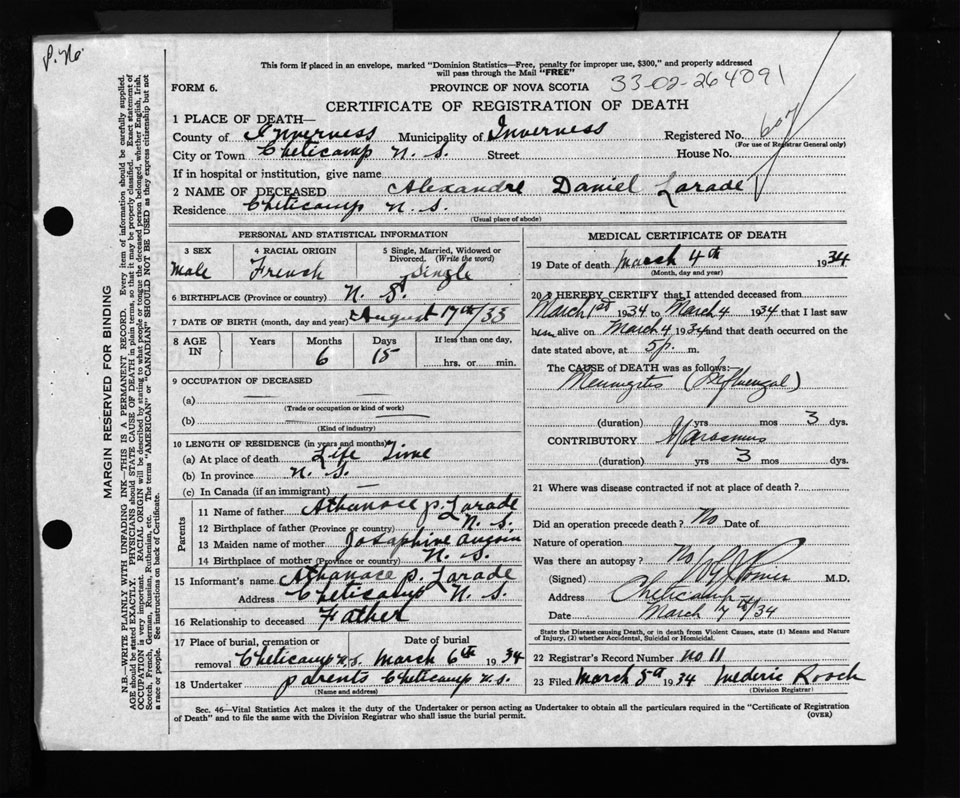 P. No.
This form if placed in an envelope, marked "Dominion Statistics—Free, penalty for improper use, $300," and properly addressed
will pass through the Mail "FREE"
FORM 6.
PROVINCE OF NOVA SCOTIA
33-02-264091
CERTIFICATE OF REGISTRATION OF DEATH
1 PLACE OF DEATH—
County of Inverness Municipality of Inverness Registered No. 607
(For use of Registrar General only)
City or Town Cheticamp N. S. Street House No.
If in hospital or institution, give name
2 NAME OF DECEASED Alexandre Daniel Larade
Residence Cheticamp N. S.
(Usual place of abode)
PERSONAL AND STATISTICAL INFORMATION
3 SEX 4 RACIAL ORIGIN 5 Single, Married, Widowed or
Divorced. (Write the word)
Male French Single
6 BIRTHPLACE (Province or country) N. S.
7 DATE OF BIRTH (month, day and year) August 17th/33
8 AGE IN Years Months Days If less than one day,
6 15 hrs. or min.
9 OCCUPATION OF DECEASED
(a)
(Trade or occupation or kind of work)
(b)
(Kind of industry)
10 LENGTH OF RESIDENCE (in years and months)
(a) At place of death Life Time
(b) In province N. S.
(c) In Canada (if an immigrant) —
Parents
11 Name of father Athanace P. Larade
12 Birthplace of father (Province or country) N. S.
13 Maiden name of mother Josaphine
14 Birthplace of mother (Province or country) N. S.
15 Informant's name Athanace P. Larade
Address Cheticamp N. S.
16 Relationship to deceased Father
17 Place of burial, cremation or Date of burial
removal Cheticamp N.S. March 6th 1934
18 Undertaker parents Cheticamp N.S.
(Name and address)
MEDICAL CERTIFICATE OF DEATH
19 Date of death March 4th 1934
(Month, day and year)
20 I HEREBY CERTIFY that I attended deceased from
March 1st 1934 to March 4 1934 that I last saw
him alive on March 4 1934 and that death occurred on
date stated above, at 5 p. m.
The CAUSE of DEATH was as follows:
Meningitis (Influenzal)
(duration) yrs mos 3 dys.
CONTRIBUTORY Marasmus
(duration) yrs 3 mos dys.
21 Where was disease contracted if not at place of death?
Did an operation precede death? No Date of
Nature of operation
Was there an autopsy? No
(Signed) M.D.
Address Cheticamp
Date March 7th/34
State the Disease causing Death, or in death from Violent Causes, state (1) Means and Nature
of Injury, (2) whether Accidental, Suicidal or Homicidal.
22 Registrar's Record Number No 11
23 Filed March 5th 1934 Mederic Roach
(Division Registrar)
Sec. 46—Vital Statistics Act makes it the duty of the Undertaker or person acting as Undertaker to obtain all the particulars required in the "Certificate of Registration
of Death" and to file the same with the Division Registrar who shall issue the burial permit.
(OVER)
MARGIN RESERVED FOR BINDING
N.B.—WRITE PLAINLY WITH UNFADING INK—THIS IS A PERMANENT RECORD. Every item of information should be carefully supplied.
AGE should be stated EXACTLY. PHYSICIANS should STATE CAUSE OF DEATH in plain terms, so that it may be properly classified. Exact statement of
OCCUPATION is very important. RACIAL ORIGIN will be described by stating to what people or tongue the deceased person belonged, whether English, Irish,
Scotch, French, German, Russian, Ruthenian, etc. The terms "AMERICAN" or "CANADIAN" SHOULD NOT BE USED as they express citizenship but not
a race or people. See instructions on back of Certificate.